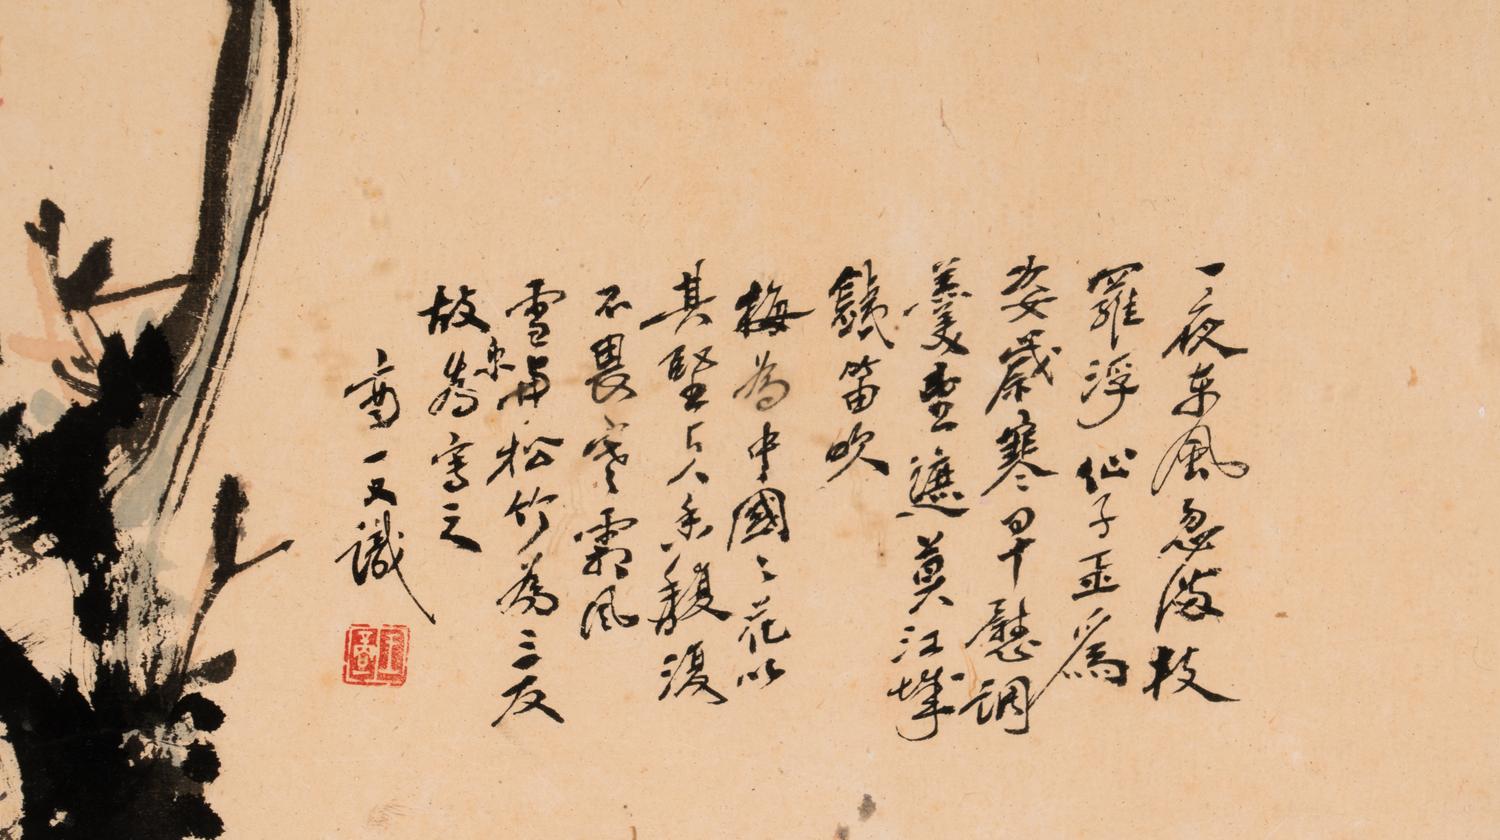 一夜东風忽滿枝
羅浮仙子玉為
姿歲寒早慰調
羹望遮莫江城
鐵笛吹
梅為中國之花以
其堅貞香馥復
不畏寒霜風
雪與松竹為三友
故樂為寫之
壽一又識
王